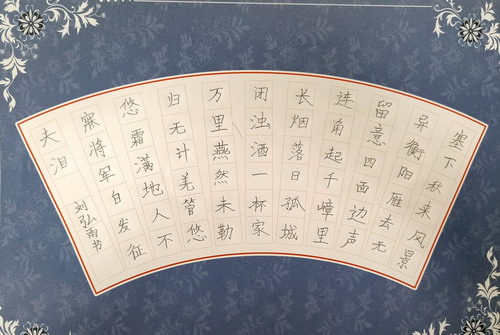 塞下秋来风景
异衡阳雁去无
留意四面边声
连角起千嶂里
长烟落日孤城
闭浊酒一杯家
万里燕然未勒
归无计羌管悠
悠霜满地人不
寐将军白发征
夫泪
刘弘雨书